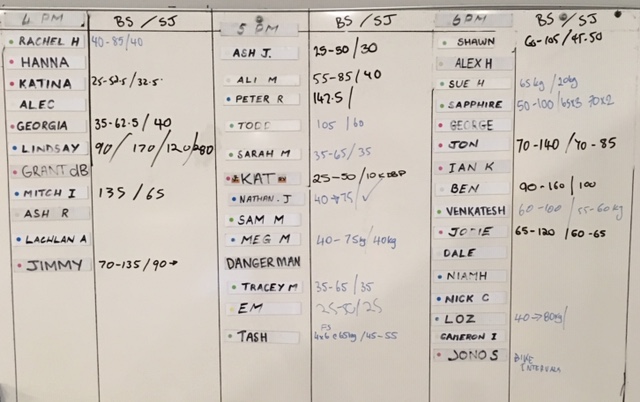 4 PM BS / SJ
RACHEL H 40-85/40
HANNA
KATINA 25-52.5/32.5
ALEC
GEORGIA 35-62.5/40
LINDSAY 90/170/120/280
GRANT dB
MITCH I 135/65
ASH R
LACHLAN A
JIMMY 70-135/90→
5 PM BS / SJ
ASH J. 25-50/30
ALI M 55-85/40
PETER R 142.5/
TODD 105/60
SARAH M 35-65/35
KAT 25-50/10
NATHAN.J 40→75/✓
SAM M
MEG M 40-75kg/40kg
DANGERMAN
TRACEY M 35-65/35
EM 25-50/25
TASH FS 4x6 @ 65kg/45-55
6 PM BS / SJ
SHAWN 65-105/45-50
ALEX H
SUE H 65kg/20kg
SAPPHIRE 50-100/65x3 70x2
GEORGE
JON 70-140/70-85
IAN K
BEN 90-160/100
VENKATESH 60-100/55-60kg
JODIE 65-120/60-65
DALE
NIAMH
NICK C
LOZ 40→80kg/
CAMERON I
JONO S BIKE
INTERVALS